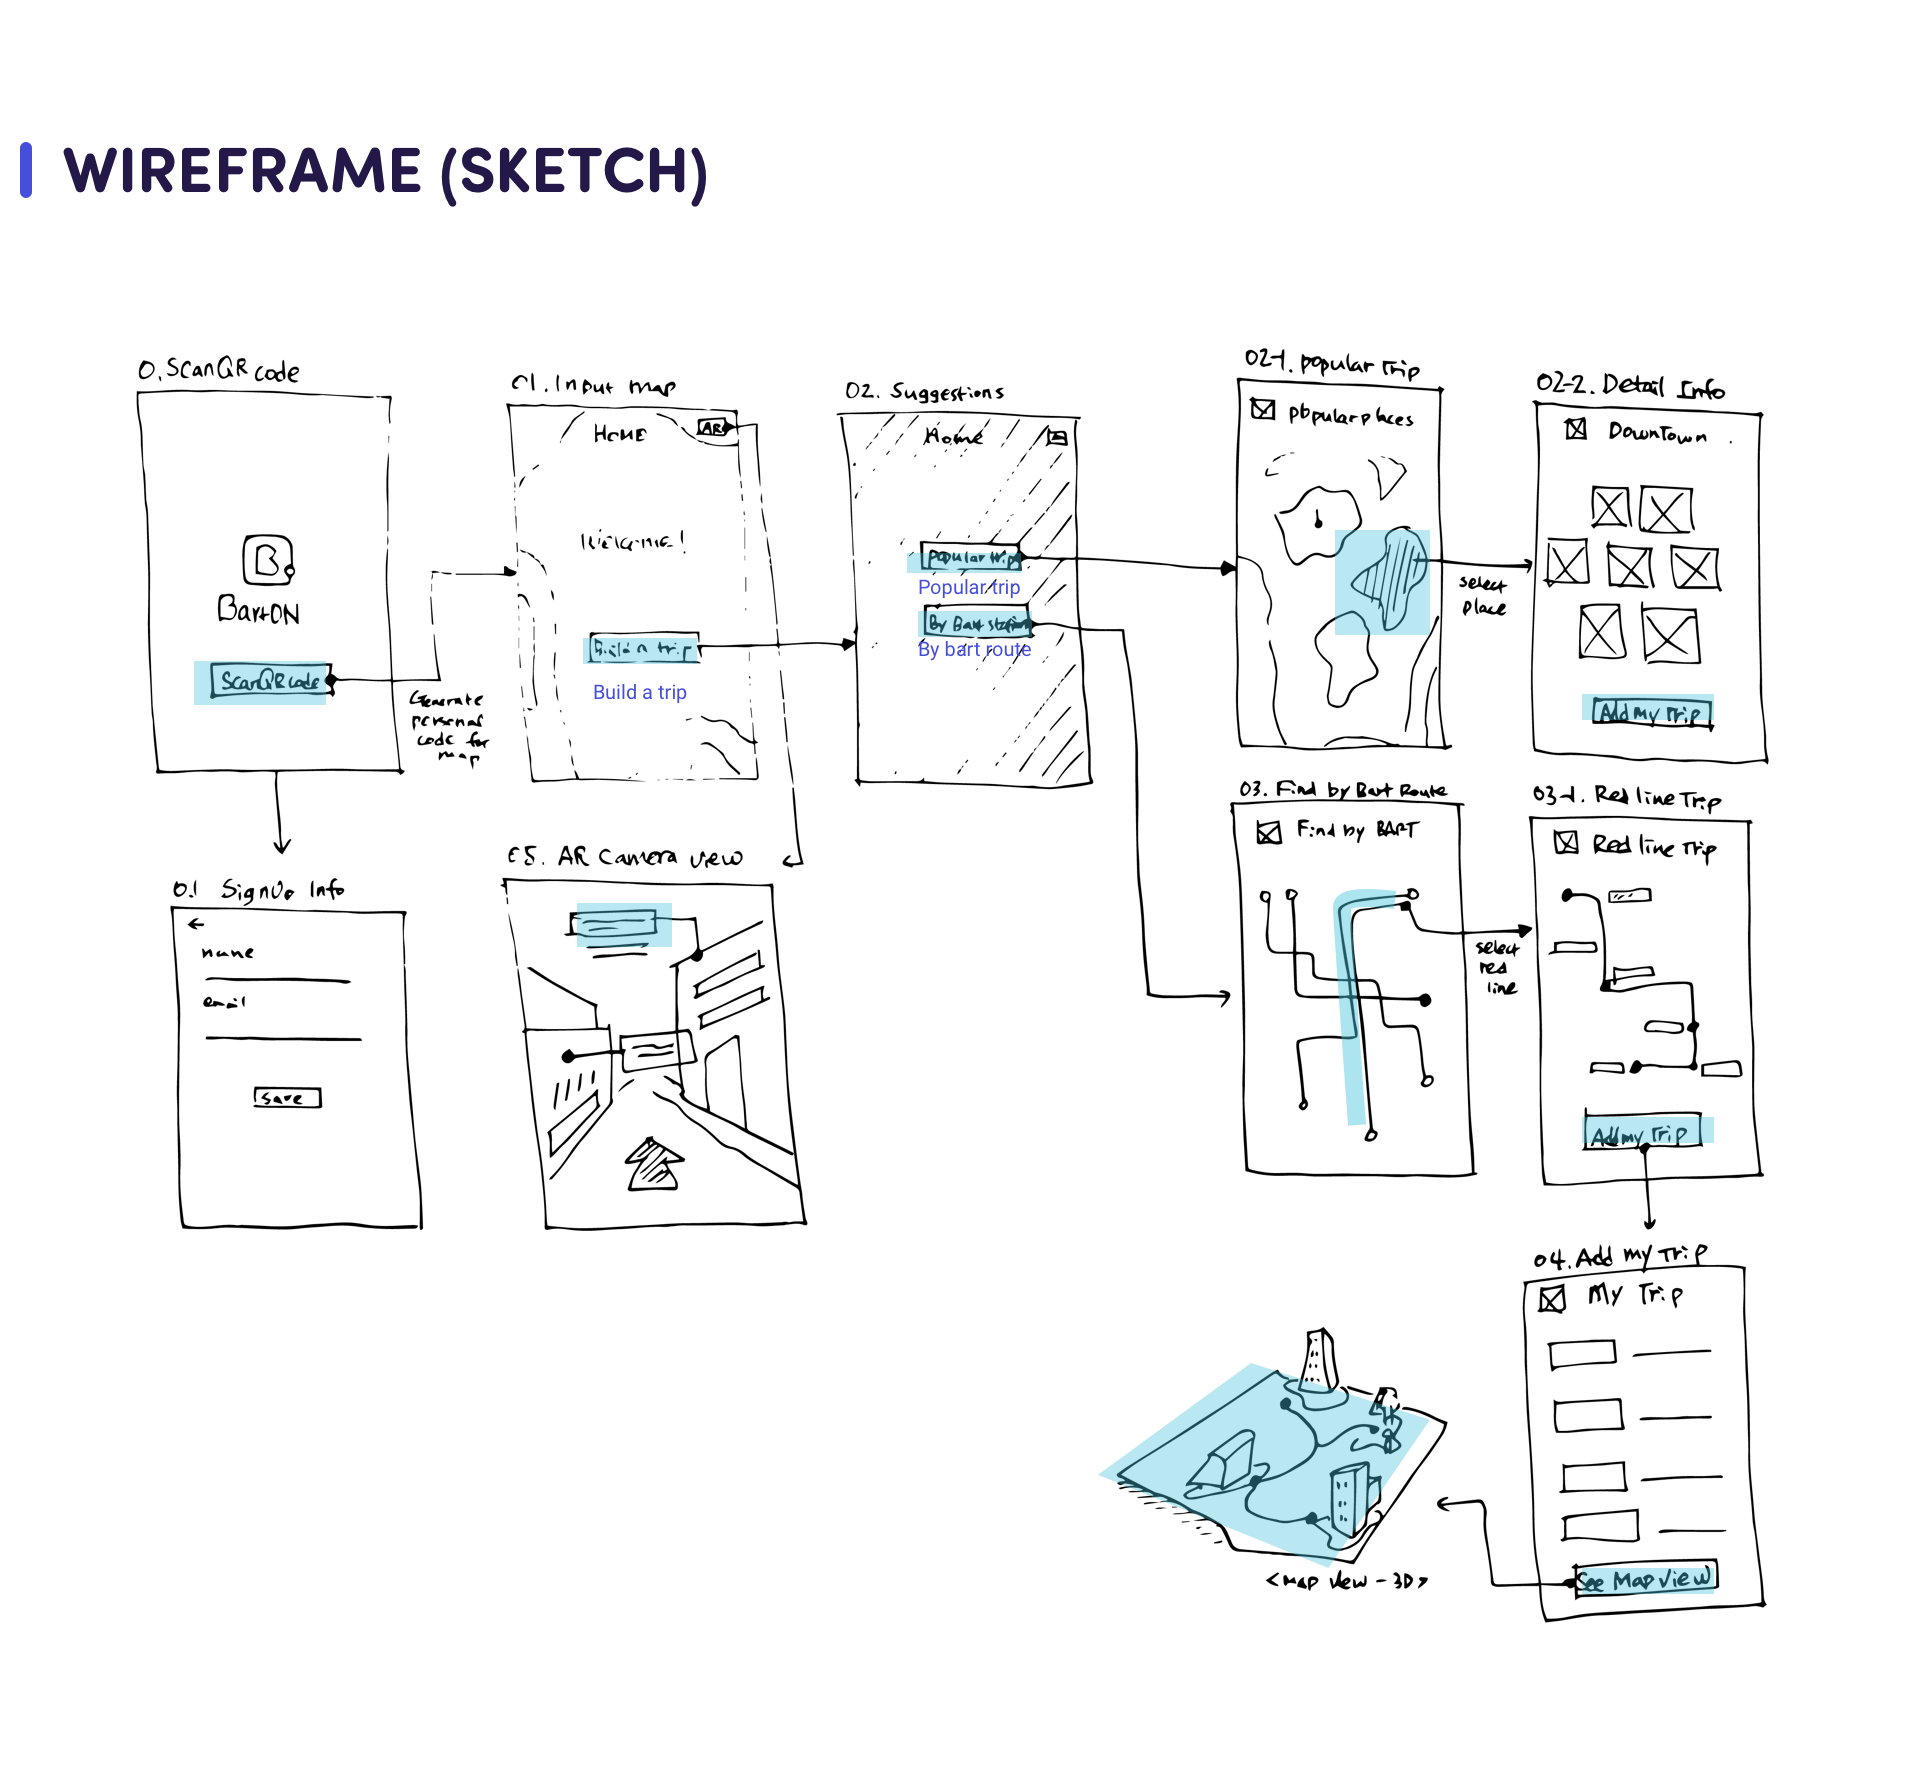 WIREFRAME (SKETCH)
0. Scan QR code
B
BartON
Scan QR code
Generate
personal
code for
map
01. Input map
HOME
AR
Welcome!
Build a trip
Build a trip
02. Suggestions
Home
Popular trip
Popular trip
By Bart station
By bart route
02-1. popular Trip
popular places
select
place
02-2. Detail Info
DownTown
Add My Trip
0.1 SignUp Info
name
email
save
05. AR Camera view
03. Find by Bart Route
Find by BART
select
red
line
03-1. Red line Trip
Red line Trip
Add my Trip
04. Add my Trip
My Trip
See Map View
<map view - 3D>